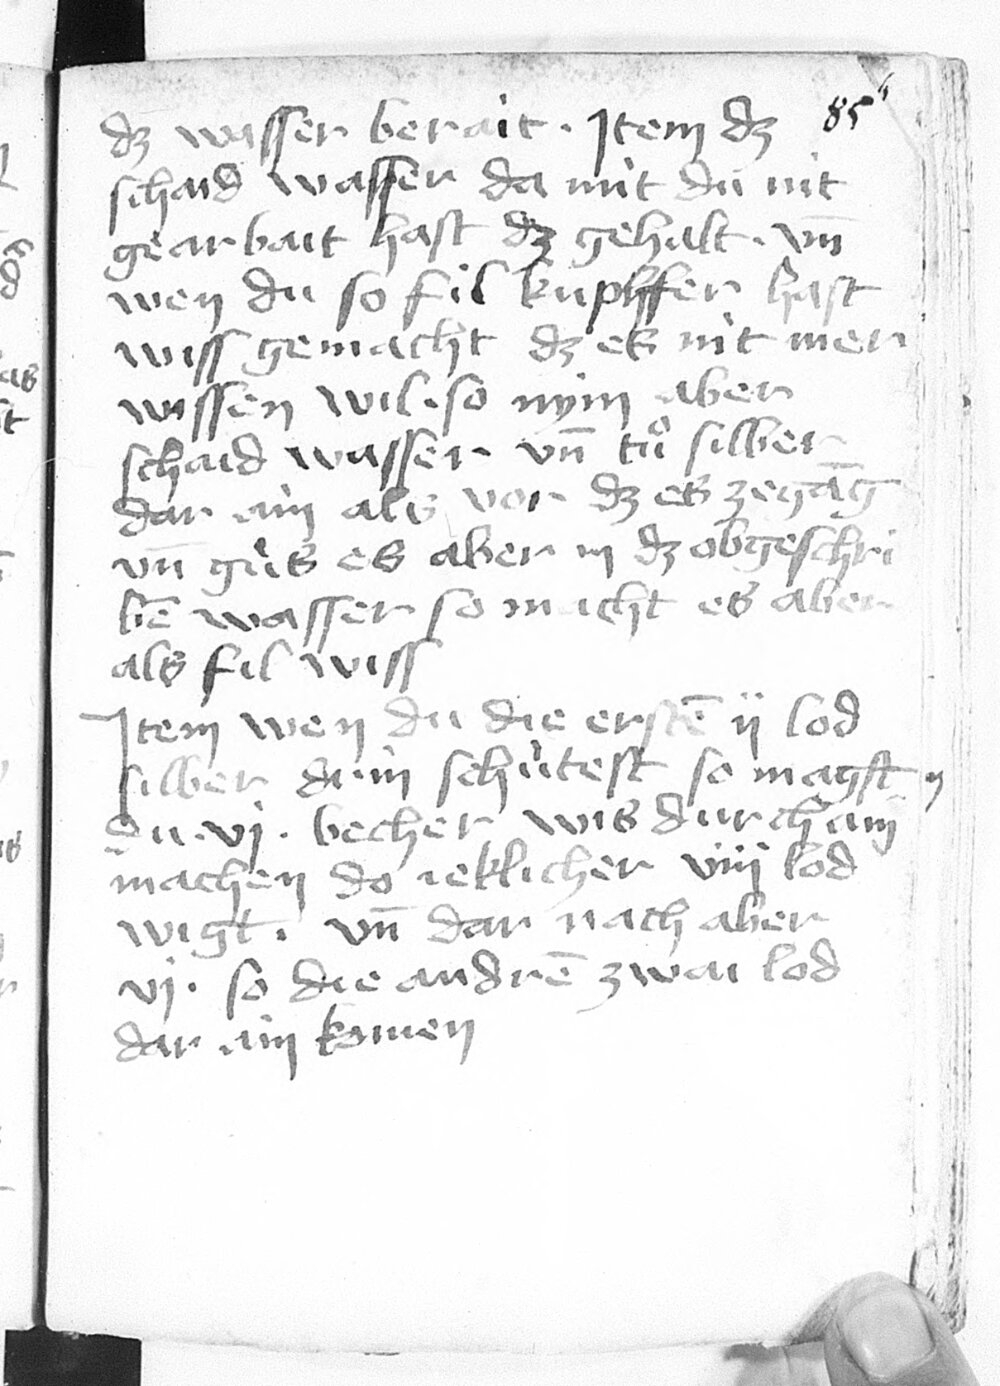 85
dz wasser berait. Item dz
schaid wasser da mit du nit
gearbait hast dz gehalt. vn̄
wen du so fil kupffer hast
wiss gemacht dz es nit mer
wissen wil. so nym aber
schaid wasser vn̄ tů silber
dar ain als vor dz es zegāg
vn̄ güs es aber in dz obgeschri
bē wasser so macht es aber
als fil wiss
Item wen du die erstē ij lod
silber druin schütest so magst
du. vj. becher wis durch ain
machen do ieklicher viiij lod
wigt. vn̄ dar nach aber
vj. so die andrē zwai lod
dar ain komen